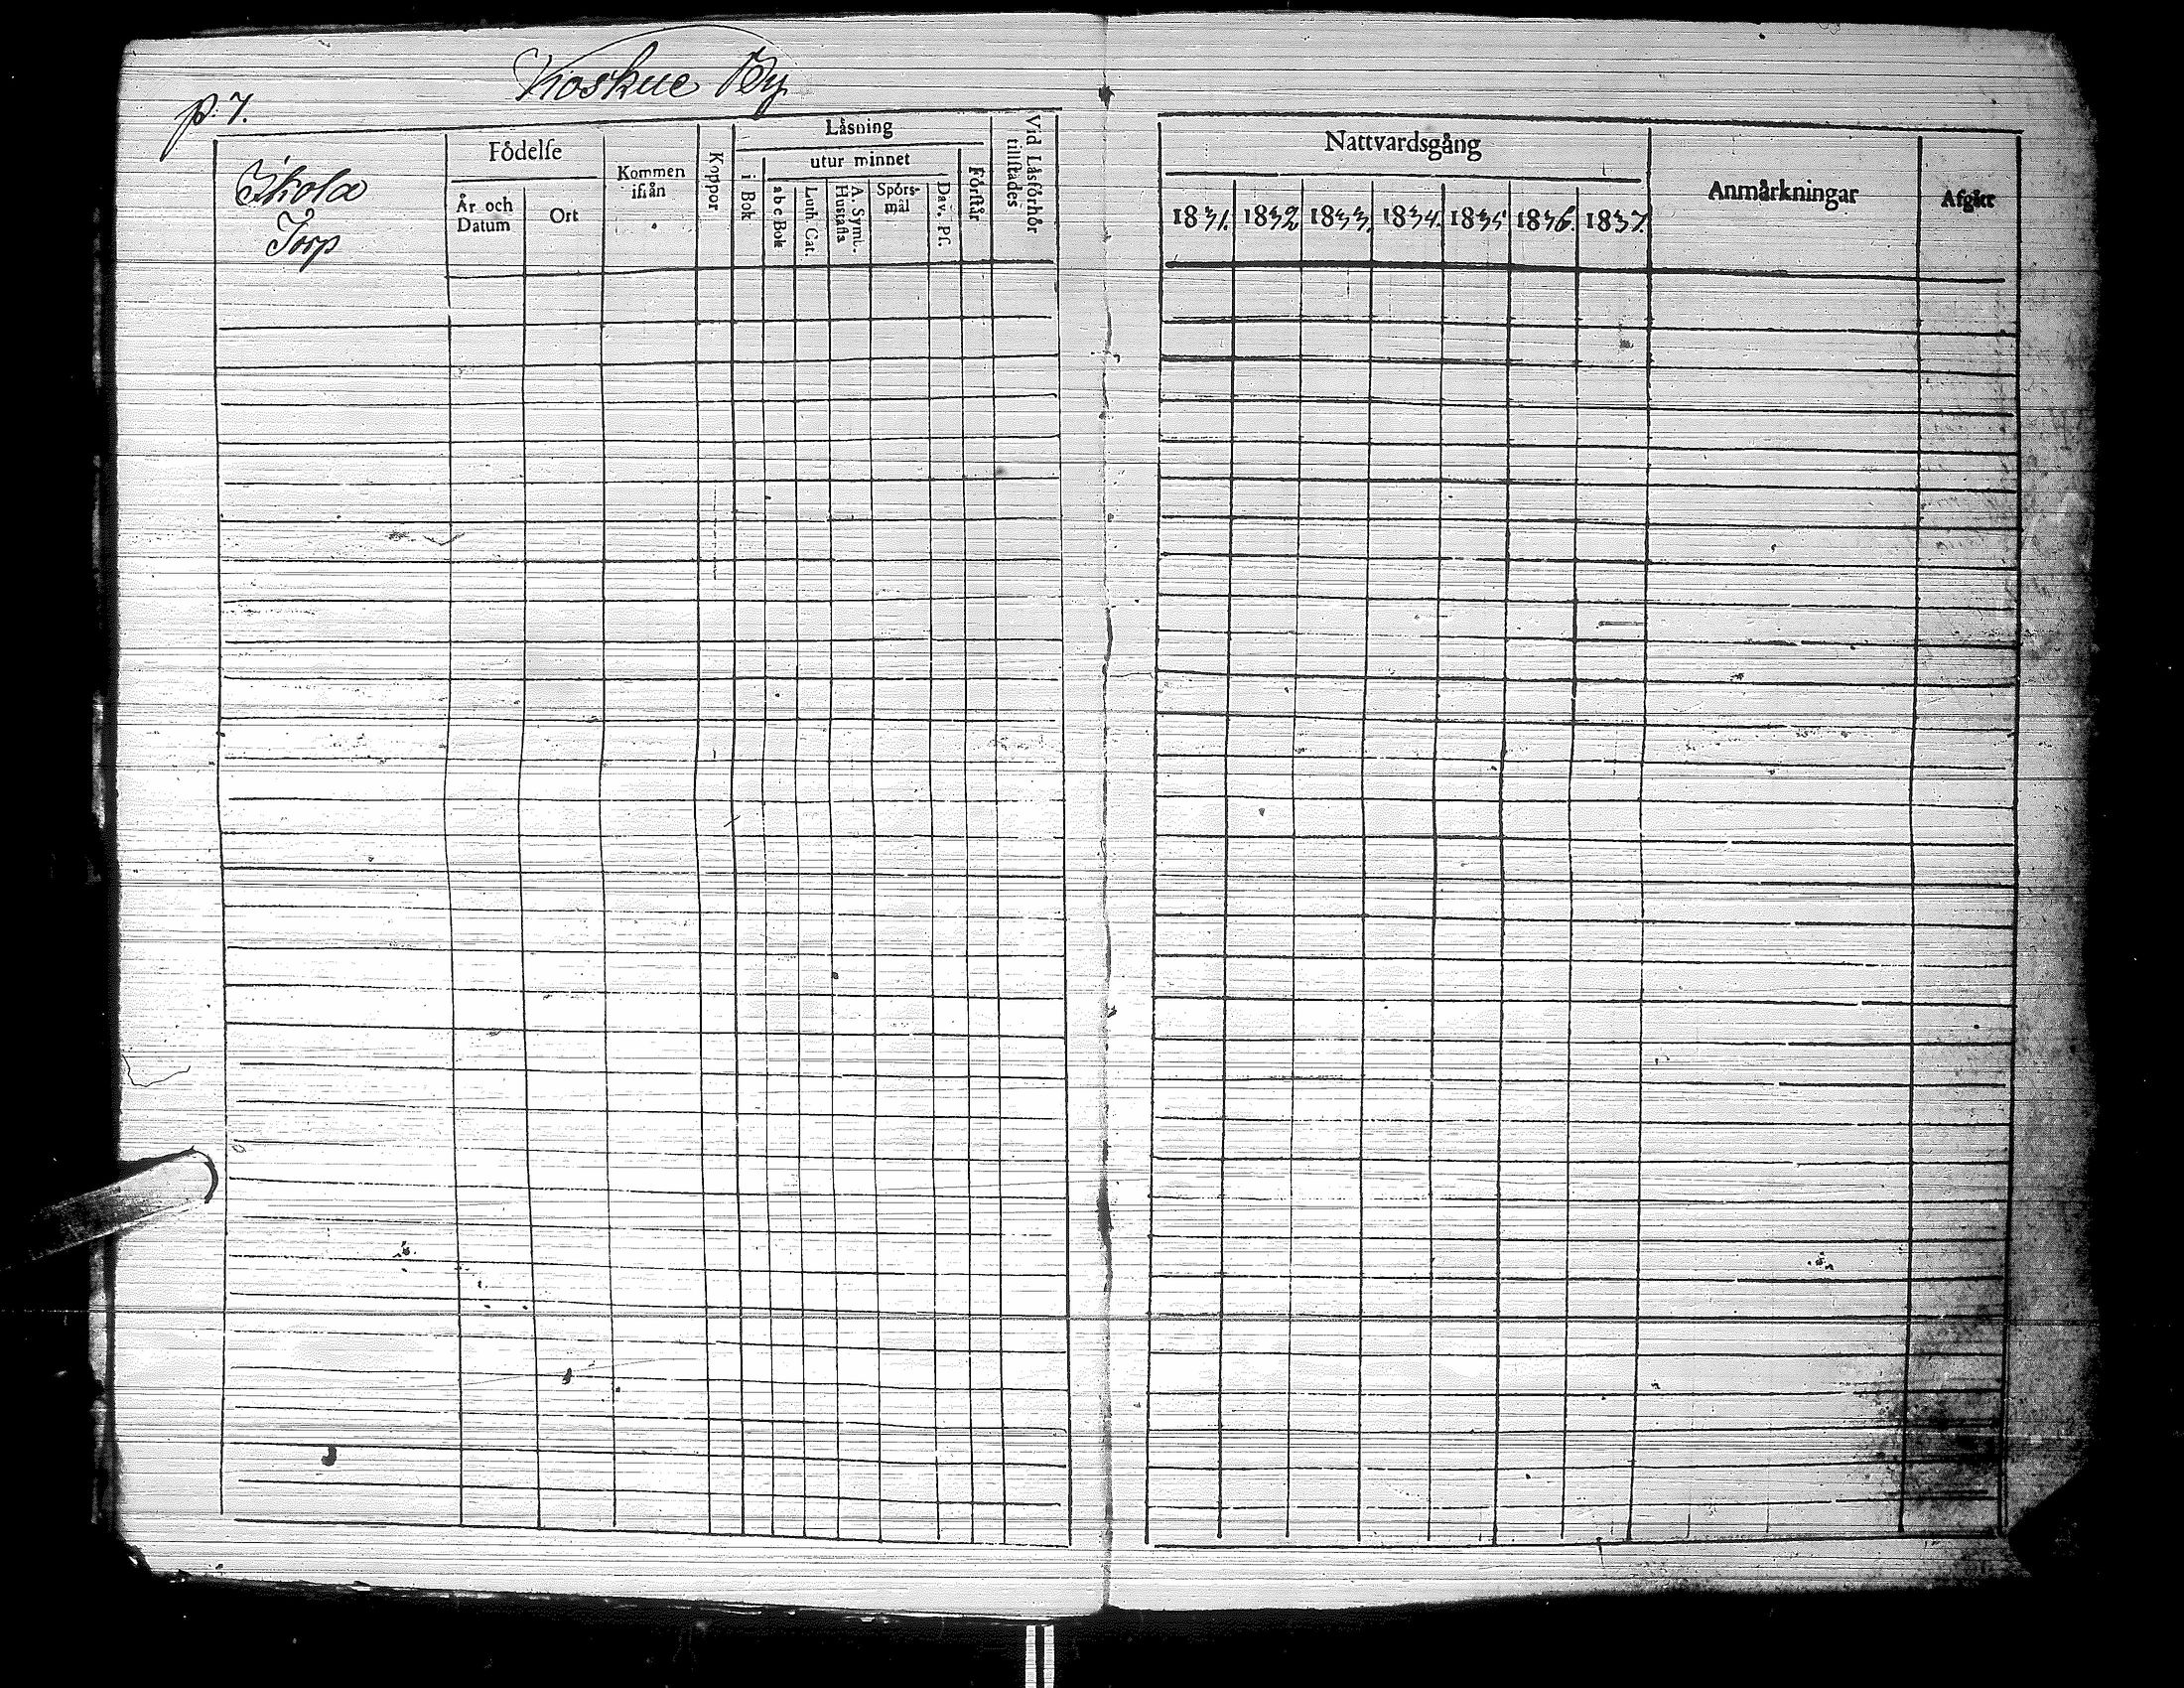 Koskue By
p. 7.
Ikola
Torp
Födelse
År och Datum
Ort
Kommen ifrån
Koppor
Läsning
i Bok
utur minnet
a b c Bok
Luth. Cat.
A. Symb. Hustafla
Spörs-mål
Dav. Ps.
Förstår
Vid Läsförhör tillstädes
Nattvardsgång
1831. 1832 1833. 1834. 1835 1836. 1837.
Anmärkningar
Afgått